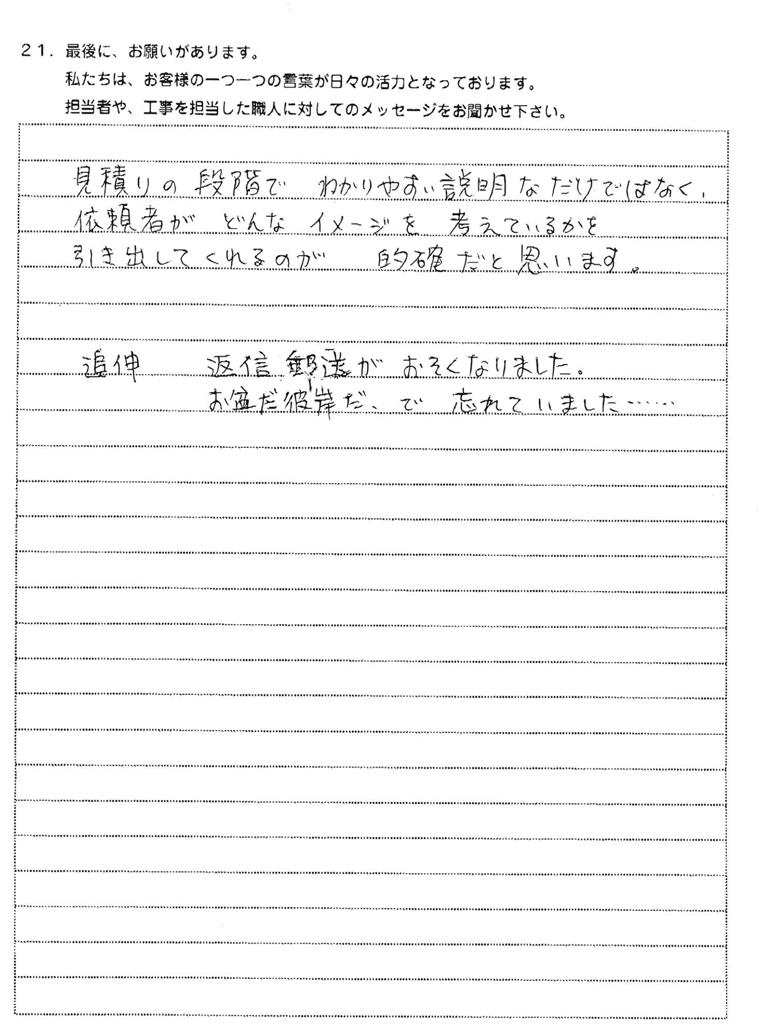 21. 最後に、お願いがあります。
私たちは、お客様の一つ一つの言葉が日々の活力となっております。
担当者や、工事を担当した職人に対してのメッセージをお聞かせ下さい。
見積りの段階で わかりやすい説明なだけではなく、
依頼者が どんな イメージを 考えているかを
引き出してくれるのが 的確だと思います。
追伸 返信郵送が おそくなりました。
お盆だ彼岸だ、で 忘れていました……